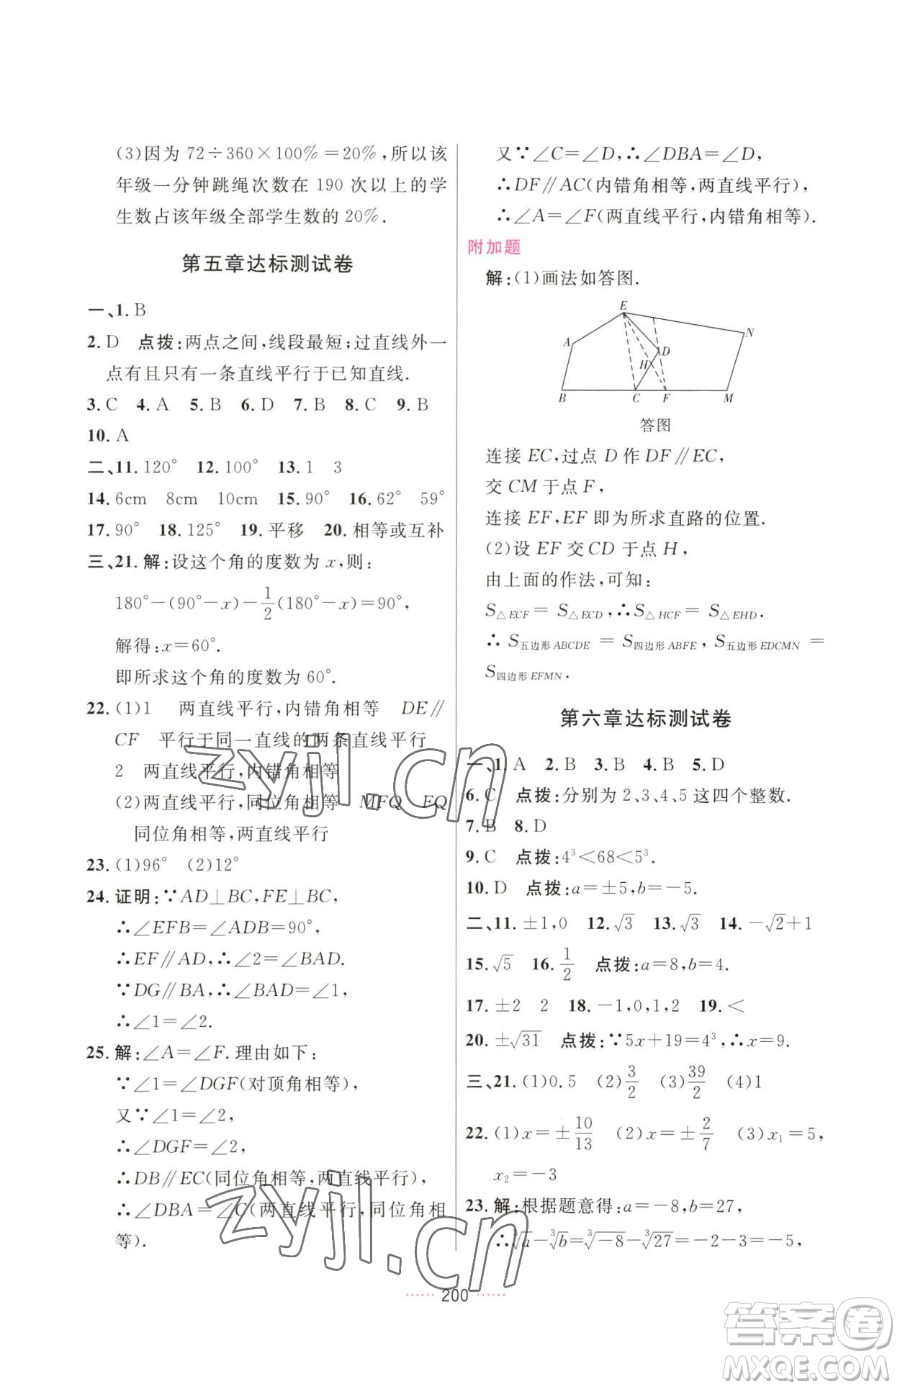 (3)因为 72÷360×100%=20%,所以该
年级一分钟跳绳次数在 190 次以上的学
生数占该年级全部学生数的 20%.
第五章达标测试卷
一、1. B
2. D 点拨:两点之间,线段最短;过直线外一
点有且只有一条直线平行于已知直线.
3. C 4. A 5. B 6. D 7. B 8. C 9. B
10. A
二、11. 120° 12. 100° 13. 1 3
14. 6cm 8cm 10cm 15. 90° 16. 62° 59°
17. 90° 18. 125° 19. 平移 20. 相等或互补
三、21. 解:设这个角的度数为 x,则:
180°-(90°-x)-1/2(180°-x)=90°,
解得:x=60°.
即所求这个角的度数为 60°.
22. (1)1 两直线平行,内错角相等 DE∥
CF 平行于同一直线的两条直线平行
2 两直线平行,内错角相等
(2)两直线平行,同位角相等 MFQ FQ
同位角相等,两直线平行
23. (1)96° (2)12°
24. 证明:∵AD⊥BC,FE⊥BC,
∴∠EFB=∠ADB=90°,
∴EF∥AD,∴∠2=∠BAD.
∵DG∥BA,∴∠BAD=∠1,
∴∠1=∠2.
25. 解:∠A=∠F. 理由如下:
∵∠1=∠DGF(对顶角相等),
又∵∠1=∠2,
∴∠DGF=∠2,
∴DB∥EC(同位角相等,两直线平行),
∴∠DBA=∠C(两直线平行,同位角相
等).
又∵∠C=∠D,∴∠DBA=∠D,
∴DF∥AC(内错角相等,两直线平行),
∴∠A=∠F(两直线平行,内错角相等).
附加题
解:(1)画法如答图.
E
N
A
D
H
B C F M
答图
连接 EC,过点 D 作 DF∥EC,
交 CM 于点 F,
连接 EF,EF 即为所求直路的位置.
(2)设 EF 交 CD 于点 H,
由上面的作法,可知:
S△ECF=S△ECD,∴S△HCF=S△EHD.
∴S五边形ABCDE=S四边形ABFE,S五边形EDCMN=
S四边形EFMN.
第六章达标测试卷
一、1. A 2. B 3. B 4. B 5. D
6. C 点拨:分别为 2、3、4、5 这四个整数.
7. B 8. D
9. C 点拨:4³<68<5³.
10. D 点拨:a=±5,b=-5.
二、11. ±1,0 12. √3 13. √3 14. -√2+1
15. √5 16. 1/2 点拨:a=8,b=4.
17. ±2 2 18. -1,0,1,2 19. <
20. ±√31 点拨:∵5x+19=4³,∴x=9.
三、21. (1)0.5 (2)3/2 (3)39/2 (4)1
22. (1)x=±10/13 (2)x=±2/7 (3)x₁=5,
x₂=-3
23. 解:根据题意得:a=-8,b=27,
∴³√a-³√b=³√-8-³√27=-2-3=-5,
200
zyjl.cn
zyjl.cn
答案圈
MXQE.COM